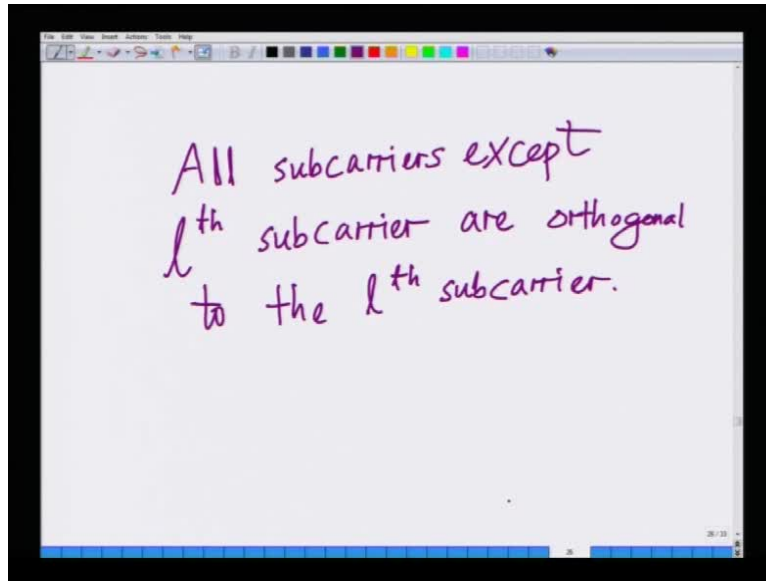 File Edit View Insert Actions Tools Help
All subcarriers except
lth subcarrier are orthogonal
to the lth subcarrier.
26